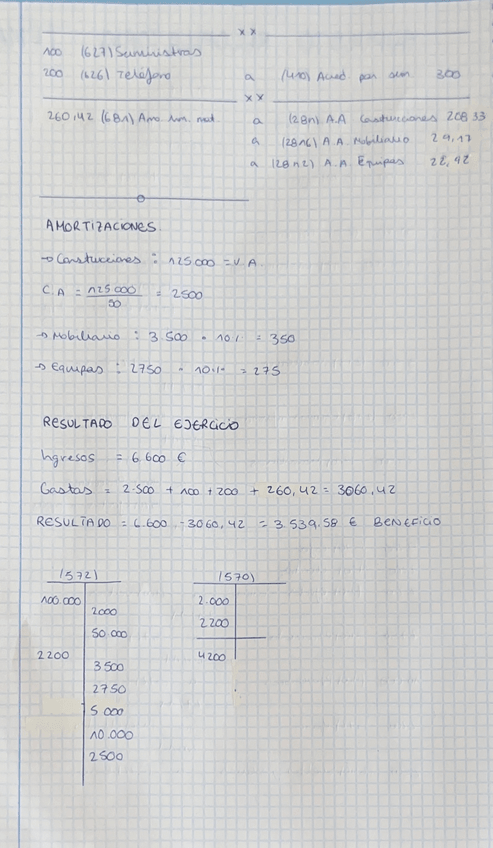 x x
100 (627) Suministros
200 (626) Teléfono a (410) Acred por serv 300
x x
260,42 (681) Amo. inm. mat. a (2811) A.A Construcciones 208 33
a (2816) A.A. Mobiliario 29,17
a (2812) A.A Equipos 22,92
AMORTIZACIONES
→ Construcciones : 125.000 = V.A.
C.A = 125 000 / 50 = 2500
→ Mobiliario : 3 500 · 10% = 350
→ Equipos : 2750 · 10% = 275
RESULTADO DEL EJERCICIO
Ingresos = 6.600 €
Gastos = 2.500 + 100 + 200 + 260,42 = 3060,42
RESULTADO = 6.600 - 3060,42 = 3.539,58 € BENEFICIO
(572) (570)
100 000 2.000
2000 2200
50 000
2200 4200
3 500
2750
5 000
10.000
2500